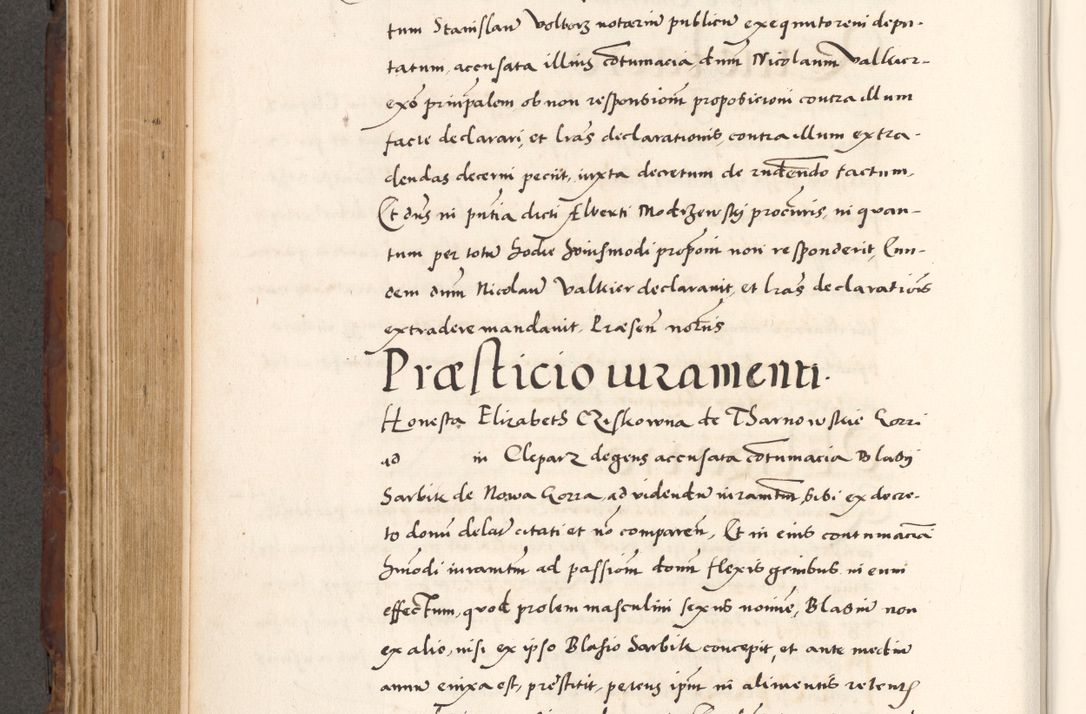 tum Stanislaũ Volborz notariũ publicũ exequutoreni depu-
tatum, accusata illius cõtumacia dnm̃ Nicolaum Valkier-
exõ prinp̃alem ob non responsionm̃ propositioni contra illum
facte declarari, et lr̃as declarationis contra illum extra-
dendas decerni peciit, iuxta decretum de rudendo factum.
Et dñs in pñtia dicti Alberti Modrzewskj procũris, ni quan-
tum per totũ hodie huiusmodi propõni non responderit, Eun-
dem dnm̃ Nicolaũ Valkier declarauit, et lr̃as declarationis
extradere mandauit. Præsen̄ notr̃iis
Præsticio iuramenti.
Honesta Elizabeth Czeskowna de Tharnowskie Gorri
ad in Cleparz degens accusata cõtumacia Blasij
Sarbik de Nowa Gorra, ad videndũ iuramtm̃ sibi ex decre-
to domĩ delatũ citati et nõ comparen̄, Et in eius contumaciã
hmõdi iuramtm̃ ad passionm̃ domĩ flexis genibus in eum
effectum, quod prolem masculini sexus nomine, Blasiũ non
ex alio, nisi ex ipso Blasio Sarbik concepit, et ante mediũ
annũ enixa est, præstitit, petens ipm̃ in alimentis retent